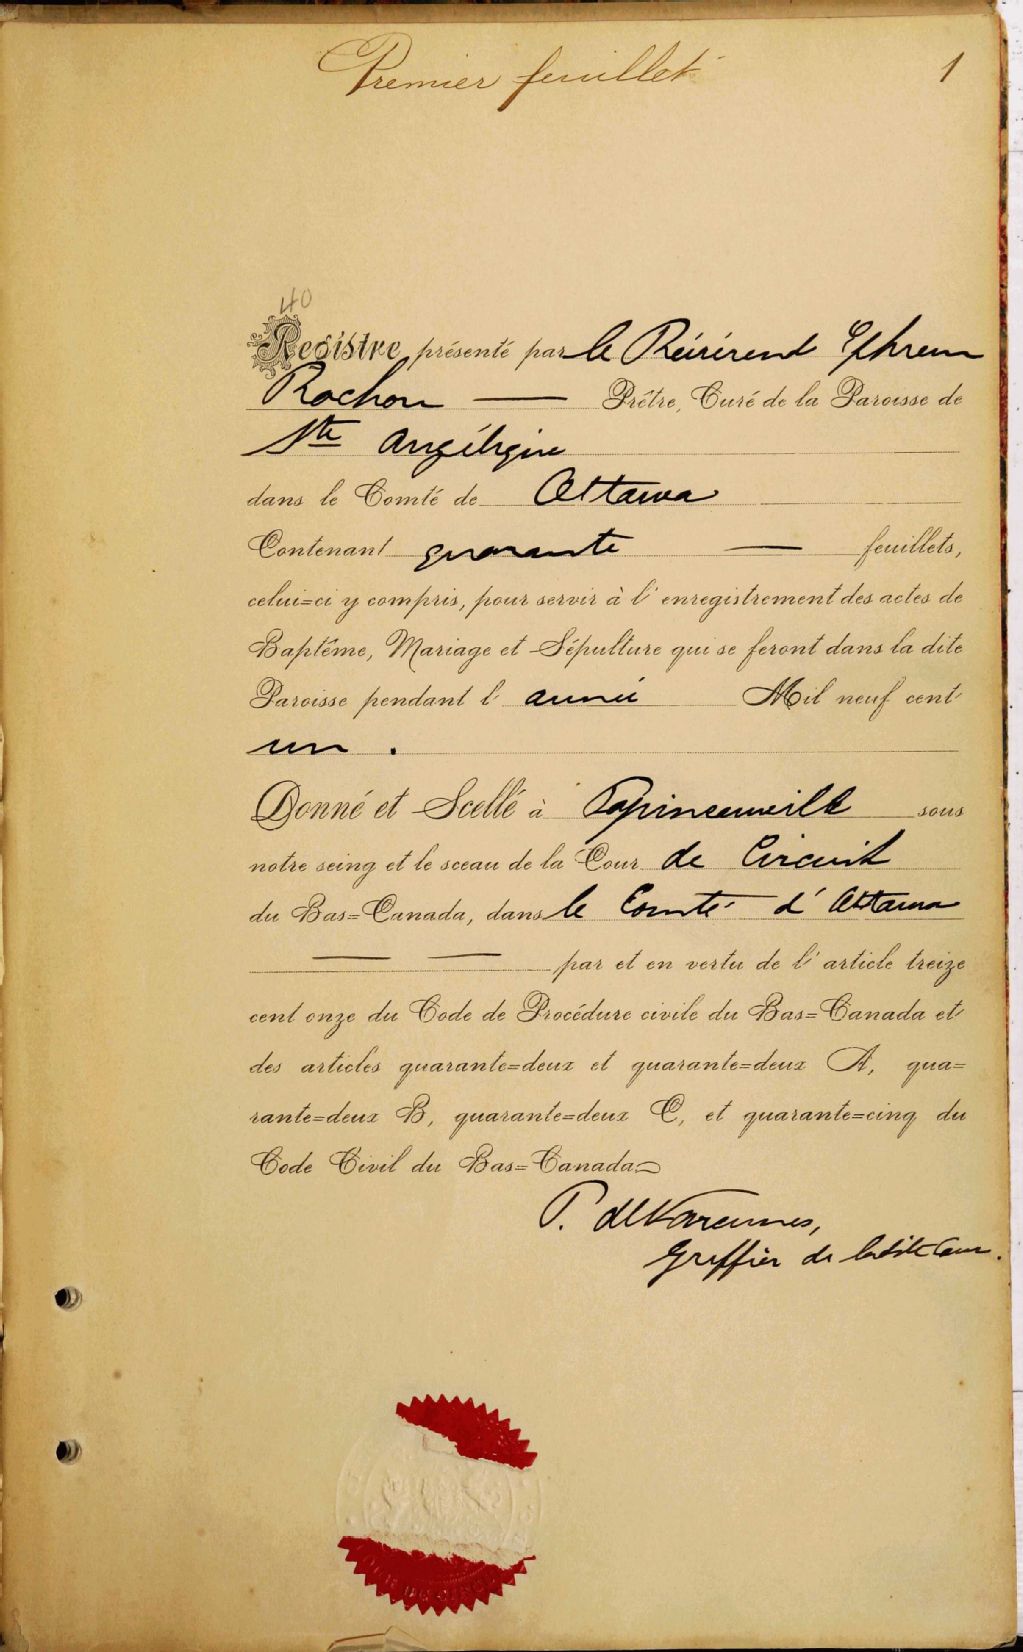 Premier feuillet 1
40
Registre présenté par le Révérend Ephrem
Rochon — Prêtre, Curé de la Paroisse de
Ste Angélique
dans le Comté de Ottawa
Contenant quarante — feuillets,
celui=ci y compris, pour servir à l'enregistrement des actes de
Baptême, Mariage et Sépulture qui se feront dans la dite
Paroisse pendant l'année Mil neuf cent
un.
Donné et Scellé à Papineauville sous
notre seing et le sceau de la Cour de Circuit
du Bas=Canada, dans le Comté d'Ottawa
— — par et en vertu de l'article treize
cent onze du Code de Procédure civile du Bas=Canada et
des articles quarante=deux et quarante=deux A, qua=
rante=deux B, quarante=deux C, et quarante=cinq du
Code Civil du Bas=Canada.
P. deVarennes,
Greffier de ladite Cour.